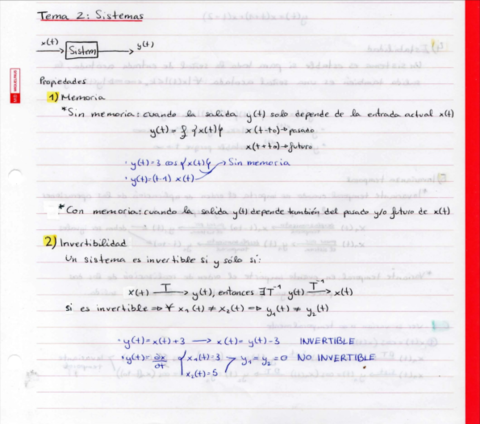 Tema 2: Sistemas
x(t) → Sistem → y(t)
Propiedades
1) Memoria
*Sin memoria: cuando la salida y(t) solo depende de la entrada actual x(t)
y(t) = f{x(t)} x(t-t0) → pasado
x(t+t0) → futuro
· y(t) = 3 cos{x(t)} → Sin memoria
· y(t) = (t-1) x(t)
*Con memoria: cuando la salida y(t) depende también del pasado y/o futuro de x(t)
2) Invertibilidad
Un sistema es invertible si y sólo si:
x(t) —T→ y(t), entonces ∃T⁻¹ y(t) —T⁻¹→ x(t)
si es invertible ⇒ ∀ x₁(t) ≠ x₂(t) ⇒ y₁(t) ≠ y₂(t)
· y(t) = x(t)+3 → x(t) = y(t)-3 INVERTIBLE
· y(t) = ∂x/∂t { x₁(t) = 3 > y₁ = y₂ = 0 NO INVERTIBLE
x₂(t) = 5